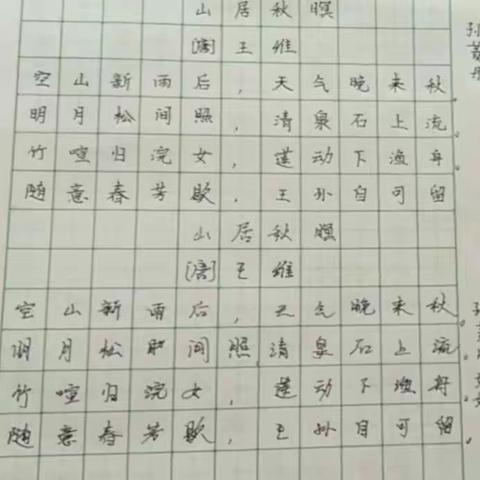 山居秋暝
[唐]王维
空山新雨后,天气晚来秋。
明月松间照,清泉石上流
竹喧归浣女,莲动下渔舟
随意春芳歇,王孙自可留
山居秋暝
[唐]王维
空山新雨后,天气晚来秋。
明月松 间照,清泉石上流。
竹喧归浣女,莲动下渔舟。
随意春芳歇,王孙自可留。